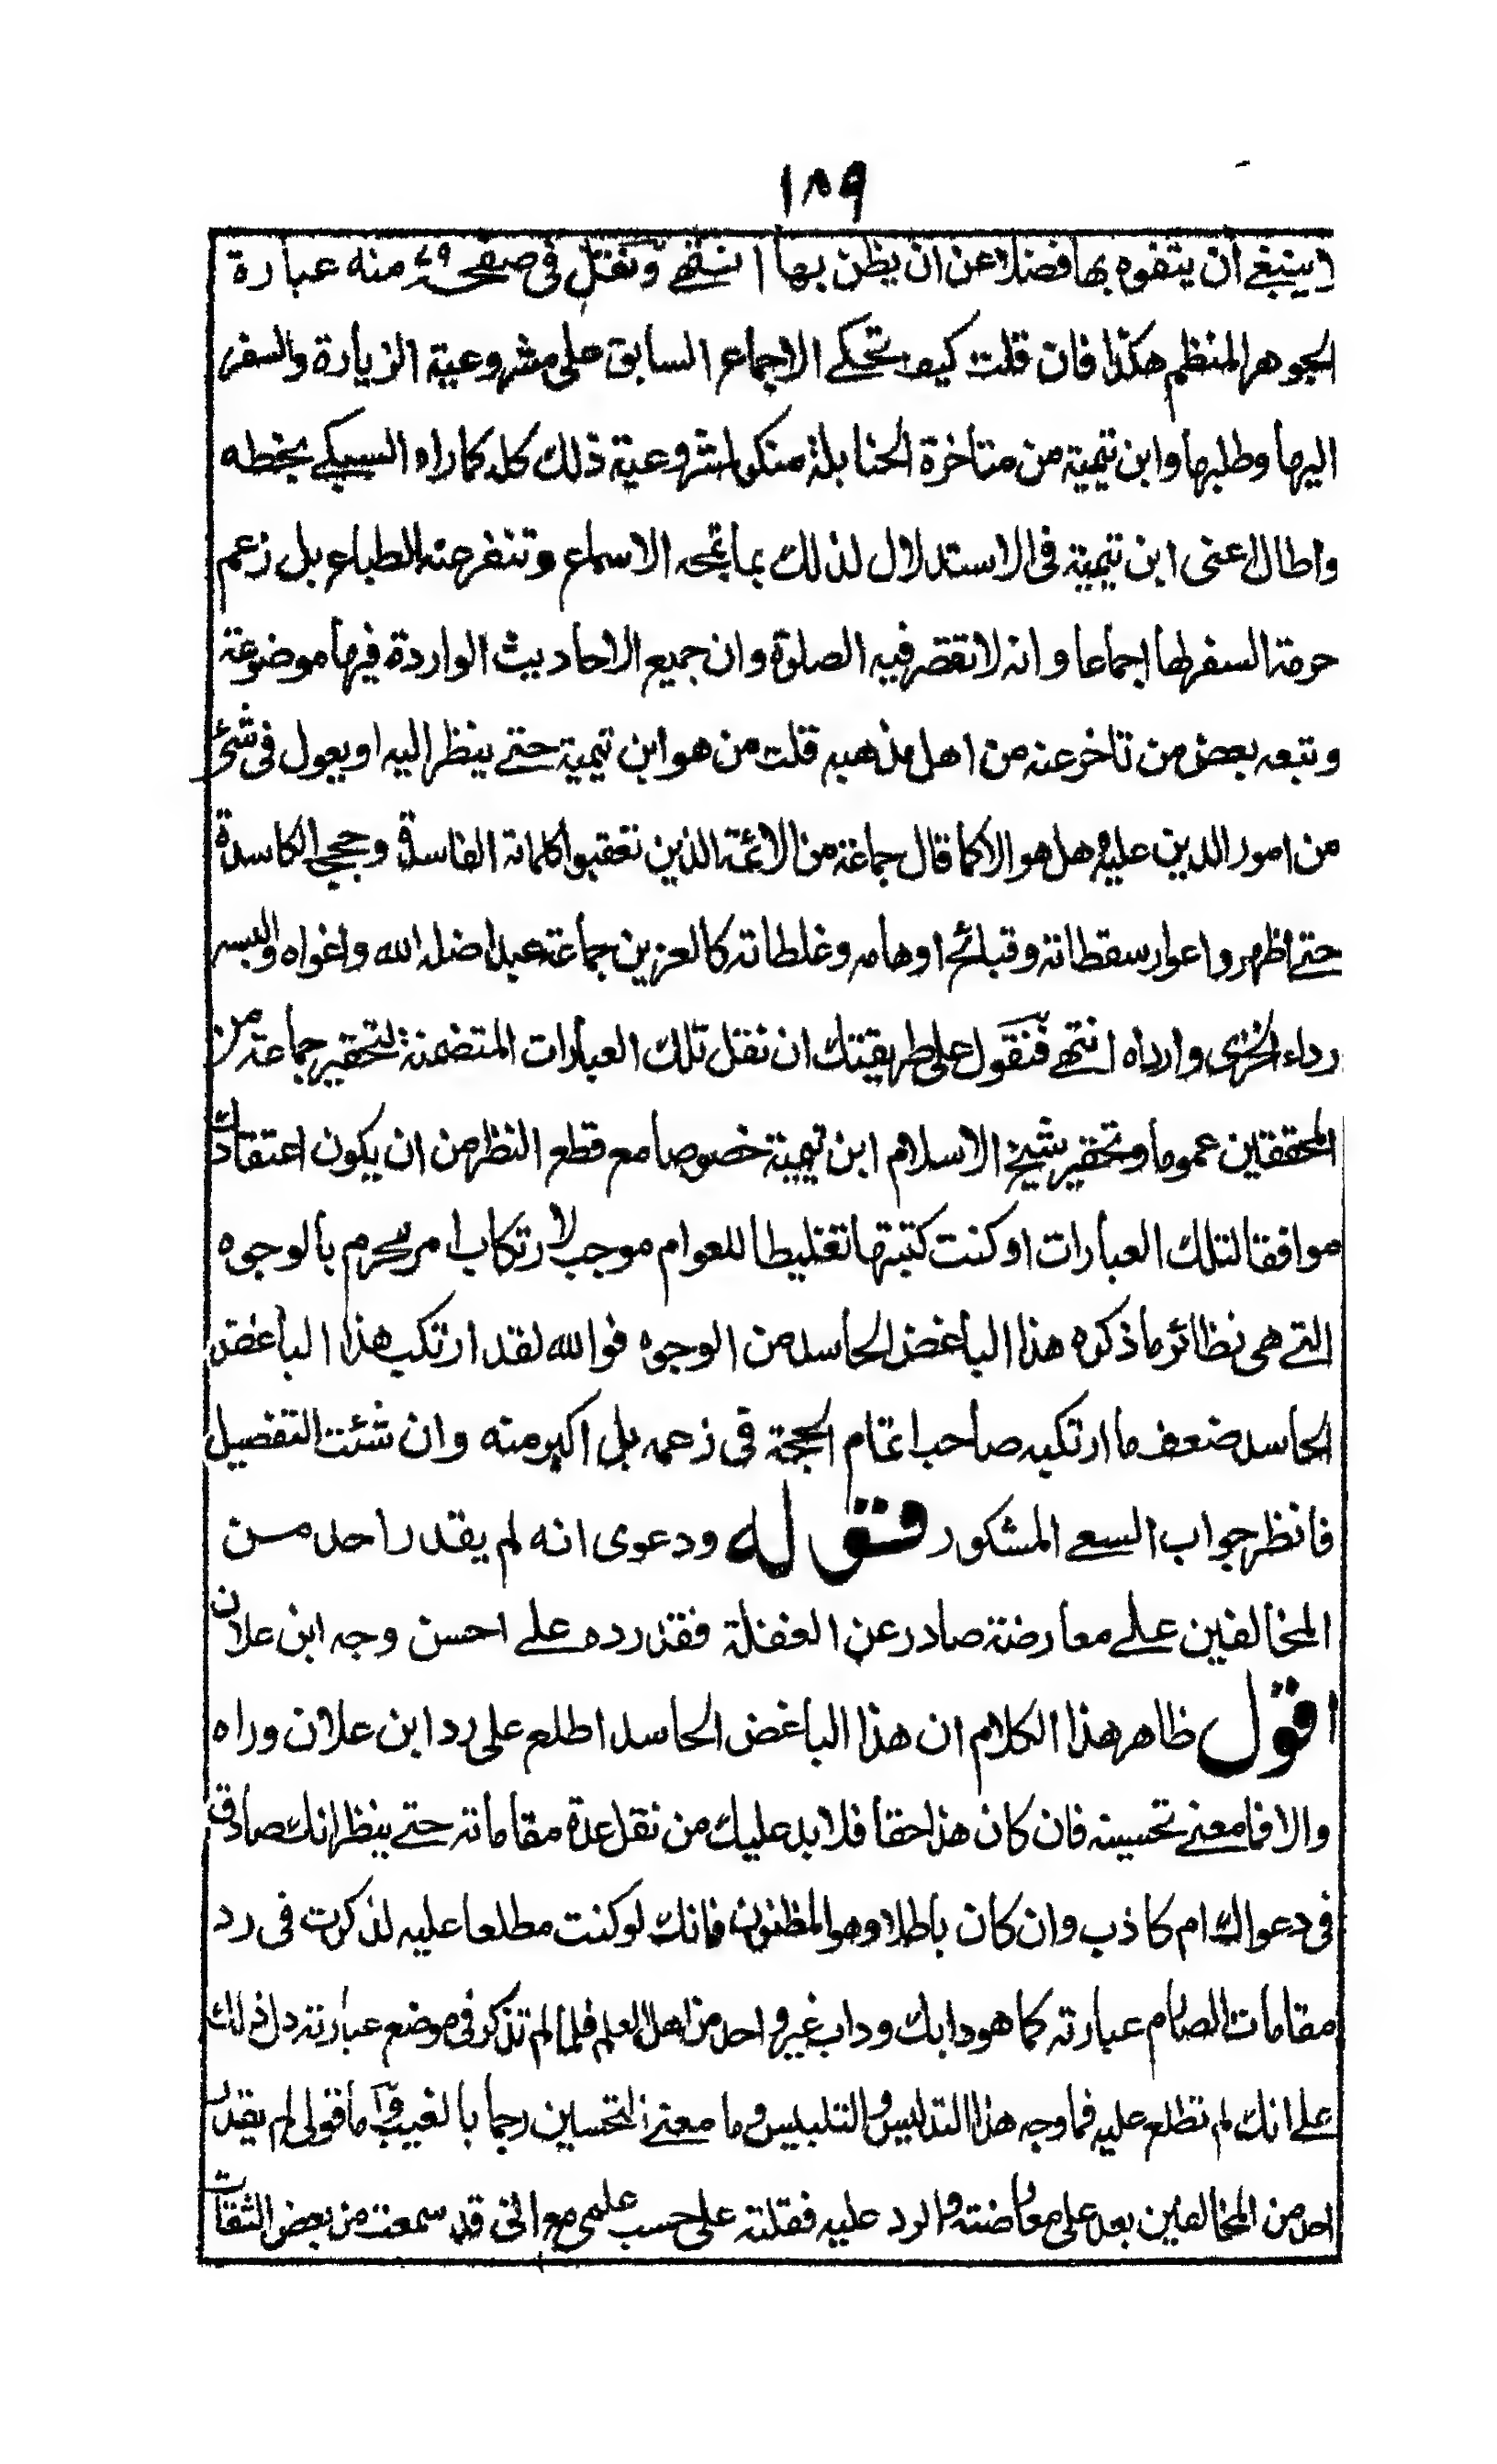 ١٨٩
لا ينبغي ان يتفوه بها فضلا عن ان يظن بها انتهى ونقل فى صفحه ٤٩ منه عبارة
الجوهر المنظم هكذا فان قلت كيف تحكى الاجماع السابق على مشروعية الزيارة والسفر
اليها وطلبها وابن تيمية من متاخرة الحنابلة منكر لمشروعية ذلك كله كما راه السبكي بخطه
واطال اعنى ابن تيمية فى الاستدلال لذلك بما تمجه الاسماع وتنفر عنه الطباع بل زعم
حرمة السفر لها اجماعا وانه لا تقصر فيه الصلوة وان جميع الاحاديث الواردة فيها موضوعة
وتبعه بعض من تاخر عنه من اهل مذهبه قلت من هو ابن تيمية حتى ينظر اليه او يعول فى شئ
من امور الدين عليه وهل هو الا كما قال جماعة من الائمة الذين تعقبوا كلماته الفاسدة وحججه الكاسدة
حتى اظهروا عوار سقطاته وقبائح اوهامه وغلطاته كالعز بن جماعة عبد اضله الله واغواه والبسه
رداء الخزى وارداه انتهى فنقول على طريقتك ان نقل تلك العبارات المتضمنة لتحقير جماعة من
المحققين عموما وتحقير شيخ الاسلام ابن تيمية خصوصا مع قطع النظر من ان يكون اعتقادك
موافقا لتلك العبارات او كنت كتبتها تغليطا للعوام موجب لارتكاب امر محرم بالوجوه
التى هى نظائر ما ذكره هذا الباغض الحاسد من الوجوه فوالله لقد ارتكب هذا الباغض
الحاسد ضعف ما ارتكبه صاحب اتمام الحجة فى زعمه بل اكبر منه وان شئت التفصيل
فانظر جواب السعى المشكور قوله ودعوى انه لم يقدر احد من
المخالفين على معارضته صادر عن الغفلة فقد رده على احسن وجه ابن علان
اقول ظاهر هذا الكلام ان هذا الباغض الحاسد اطلع على رد ابن علان وراه
والا فما معنى تحسينه فان كان هذا حقا فلا بد عليك من نقل عدة مقاماته حتى ينظر انك صادق
فى دعواك ام كاذب وان كان باطلا وهو المظنون فانك لو كنت مطلعا عليه لذكرت فى رد
مقامات الصارم عبارته كما هو دابك وداب غير واحد من اهل العلم فلما لم تذكر فى موضع عبارته دل ذلك
على انك لم تطلع عليه فما وجه هذا التدليس والتلبيس وما معنى التحسين رجما بالغيب واما قولى لم يقدر
احد من المخالفين بعد على معارضته والرد عليه فقلته على حسب علمى مع انى قد سمعت من بعض الثقات